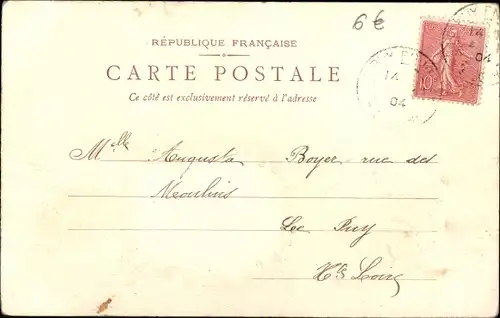 6€
RÉPUBLIQUE FRANÇAISE
CARTE POSTALE
Ce côté est exclusivement réservé à l'adresse
10
14
04
14
04
Mlle Augusta Boyer rue des
Moulins
Le Puy
Hte Loire